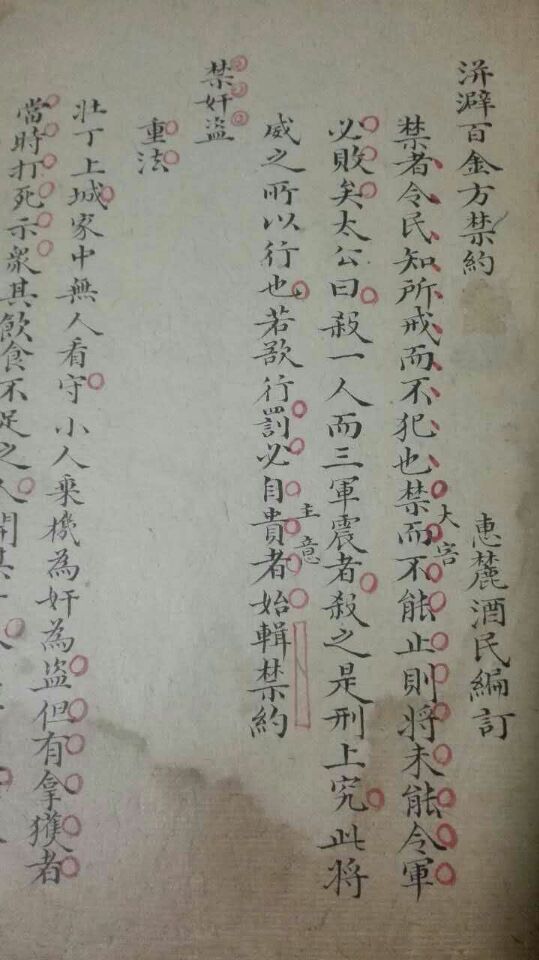 洴澼百金方禁約
惠麓酒民編訂
禁者令民知所戒而不犯也禁而不能止則將未能令軍
大害
必敗矣太公曰殺一人而三軍震者殺之是刑上究此將
威之所以行也若欲行罰必自貴者始輯禁約
主意
禁奸盜
重法
壯丁上城家中無人看守小人乘機為奸為盜但有拿獲者
當時打死示眾其飲食不足之人開其